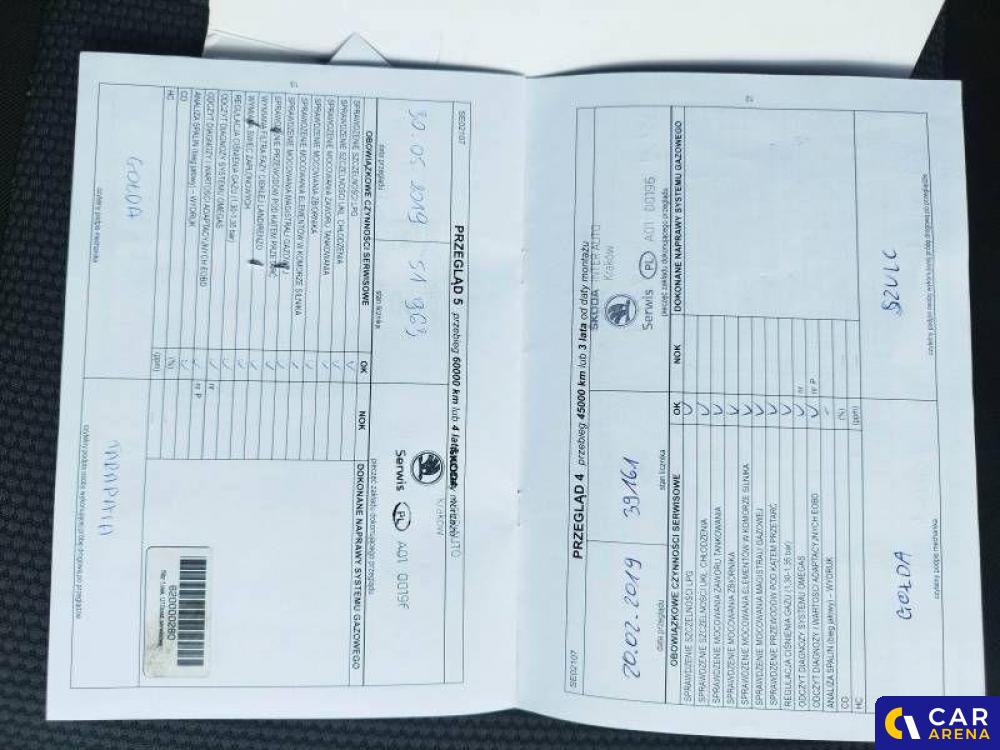 SE02107
PRZEGLĄD 4 przebieg 45000 km lub 3 lata od daty montażu
20.02.2019
39161
ŠKODA INTER AUTO
Kraków
Serwis PL A01 00196
data przeglądu
stan licznika
pieczęć zakładu dokonującego przeglądu
OBOWIĄZKOWE CZYNNOŚCI SERWISOWE
OK
NOK
DOKONANE NAPRAWY SYSTEMU GAZOWEGO
SPRAWDZENIE SZCZELNOŚCI LPG
SPRAWDZENIE SZCZELNOŚCI UKŁ. CHŁODZENIA
SPRAWDZENIE MOCOWANIA ZAWORU TANKOWANIA
SPRAWDZENIE MOCOWANIA ZBIORNIKA
SPRAWDZENIE MOCOWANIA ELEMENTÓW W KOMORZE SILNIKA
SPRAWDZENIE MOCOWANIA MAGISTRALI GAZOWEJ
SPRAWDZENIE PRZEWODÓW POD KĄTEM PRZETARĆ
REGULACJA CIŚNIENIA GAZU (1,30-1,35 bar)
ODCZYT DIAGNOZY SYSTEMU OMEGAS
nr
ODCZYT DIAGNOZY I WARTOŚCI ADAPTACYJNYCH EOBD
nr P
ANALIZA SPALIN (bieg jałowy) – WYDRUK
CO
(%)
HC
(ppm)
GOŁDA
SZULC
czytelny podpis mechanika
czytelny podpis osoby wykonującej próbę drogową po przeglądzie
SE02107
PRZEGLĄD 5 przebieg 60000 km lub 4 lata
ŠKODA
Kraków
Serwis PL A01 00196
30.05.2019
51 863
data przeglądu
stan licznika
pieczęć zakładu dokonującego przeglądu
OBOWIĄZKOWE CZYNNOŚCI SERWISOWE
OK
NOK
DOKONANE NAPRAWY SYSTEMU GAZOWEGO
SPRAWDZENIE SZCZELNOŚCI LPG
SPRAWDZENIE SZCZELNOŚCI UKŁ. CHŁODZENIA
SPRAWDZENIE MOCOWANIA ZAWORU TANKOWANIA
SPRAWDZENIE MOCOWANIA ZBIORNIKA
SPRAWDZENIE MOCOWANIA ELEMENTÓW W KOMORZE SILNIKA
SPRAWDZENIE MOCOWANIA MAGISTRALI GAZOWEJ
SPRAWDZENIE PRZEWODÓW POD KĄTEM PRZETARĆ
WYMIANA FILTRA FAZY CIEKŁEJ LANDIRENZO
WYMIANA ŚWIEC ZAPŁONOWYCH
REGULACJA CIŚNIENIA GAZU (1,30-1,35 bar)
ODCZYT DIAGNOZY SYSTEMU OMEGAS
nr
ODCZYT DIAGNOZY I WARTOŚCI ADAPTACYJNYCH EOBD
nr P
ANALIZA SPALIN (bieg jałowy) – WYDRUK
CO
(%)
HC
(ppm)
620000260
GOŁDA
czytelny podpis mechanika
czytelny podpis osoby wykonującej próbę drogową po przeglądzie
CAR
ARENA